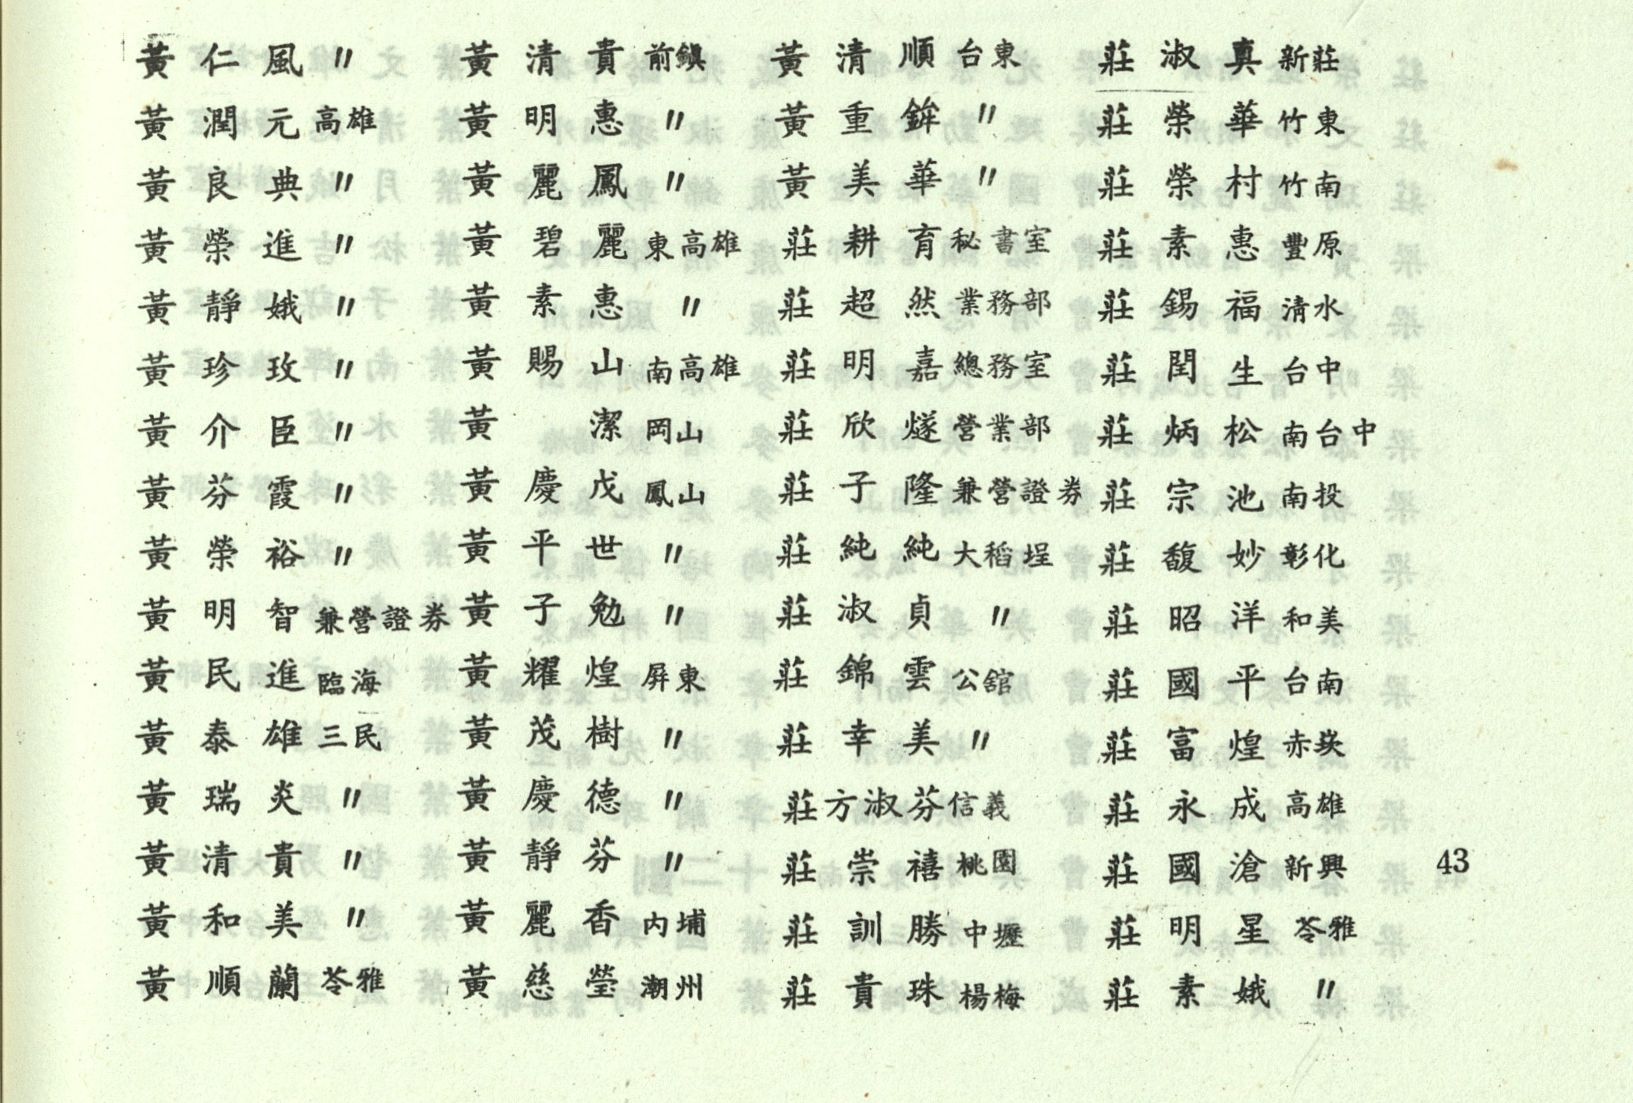 黃仁風 〃
黃潤元 高雄
黃良典 〃
黃榮進 〃
黃靜娥 〃
黃珍玫 〃
黃介臣 〃
黃芬霞 〃
黃榮裕 〃
黃明智 兼營證券
黃民進 臨海
黃泰雄 三民
黃瑞炎 〃
黃清貴 〃
黃和美 〃
黃順蘭 苓雅
黃清貴 前鎮
黃明惠 〃
黃麗鳳 〃
黃碧麗 東高雄
黃素惠 〃
黃賜山 南高雄
黃潔 岡山
黃慶戊 鳳山
黃平世 〃
黃子勉 〃
黃耀煌 屏東
黃茂樹 〃
黃慶德 〃
黃靜芬 〃
黃麗香 內埔
黃慈瑩 潮州
黃清順 台東
黃重鉾 〃
黃美華 〃
莊耕育 秘書室
莊超然 業務部
莊明嘉 總務室
莊欣燧 營業部
莊子隆 兼營證券
莊純純 大稻埕
莊淑貞 〃
莊錦雲 公館
莊幸美 〃
莊方淑芬 信義
莊崇禧 桃園
莊訓勝 中壢
莊貴珠 楊梅
莊淑真 新莊
莊榮華 竹東
莊榮村 竹南
莊素惠 豐原
莊錫福 清水
莊閏生 台中
莊炳松 南台中
莊宗池 南投
莊馥妙 彰化
莊昭洋 和美
莊國平 台南
莊富煌 赤崁
莊永成 高雄
莊國滄 新興
莊明星 苓雅
莊素娥 〃
43